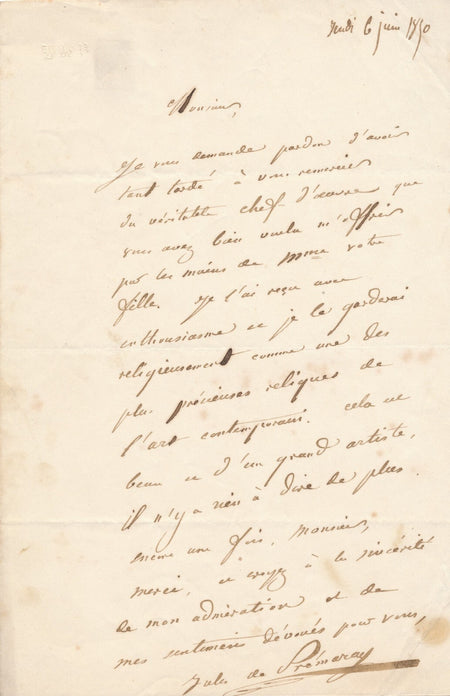 Jeudi 6 juin 1850
Monsieur,
Je vous demande pardon d'avoir
tant tardé à vous remercier
du véritable chef d'œuvre que
vous avez bien voulu m'offrir
par les mains de Mme votre
fille. Je l'ai reçu avec
enthousiasme et je le garderai
religieusement comme une des
plus précieuses reliques de
l'art contemporain. cela est
beau et d'un grand artiste,
il n'y a rien à dire de plus.
encore une fois, monsieur,
merci, et croyez à la sincérité
de mon admiration et de
mes sentiments dévoués pour vous,
Jules de Prémaray